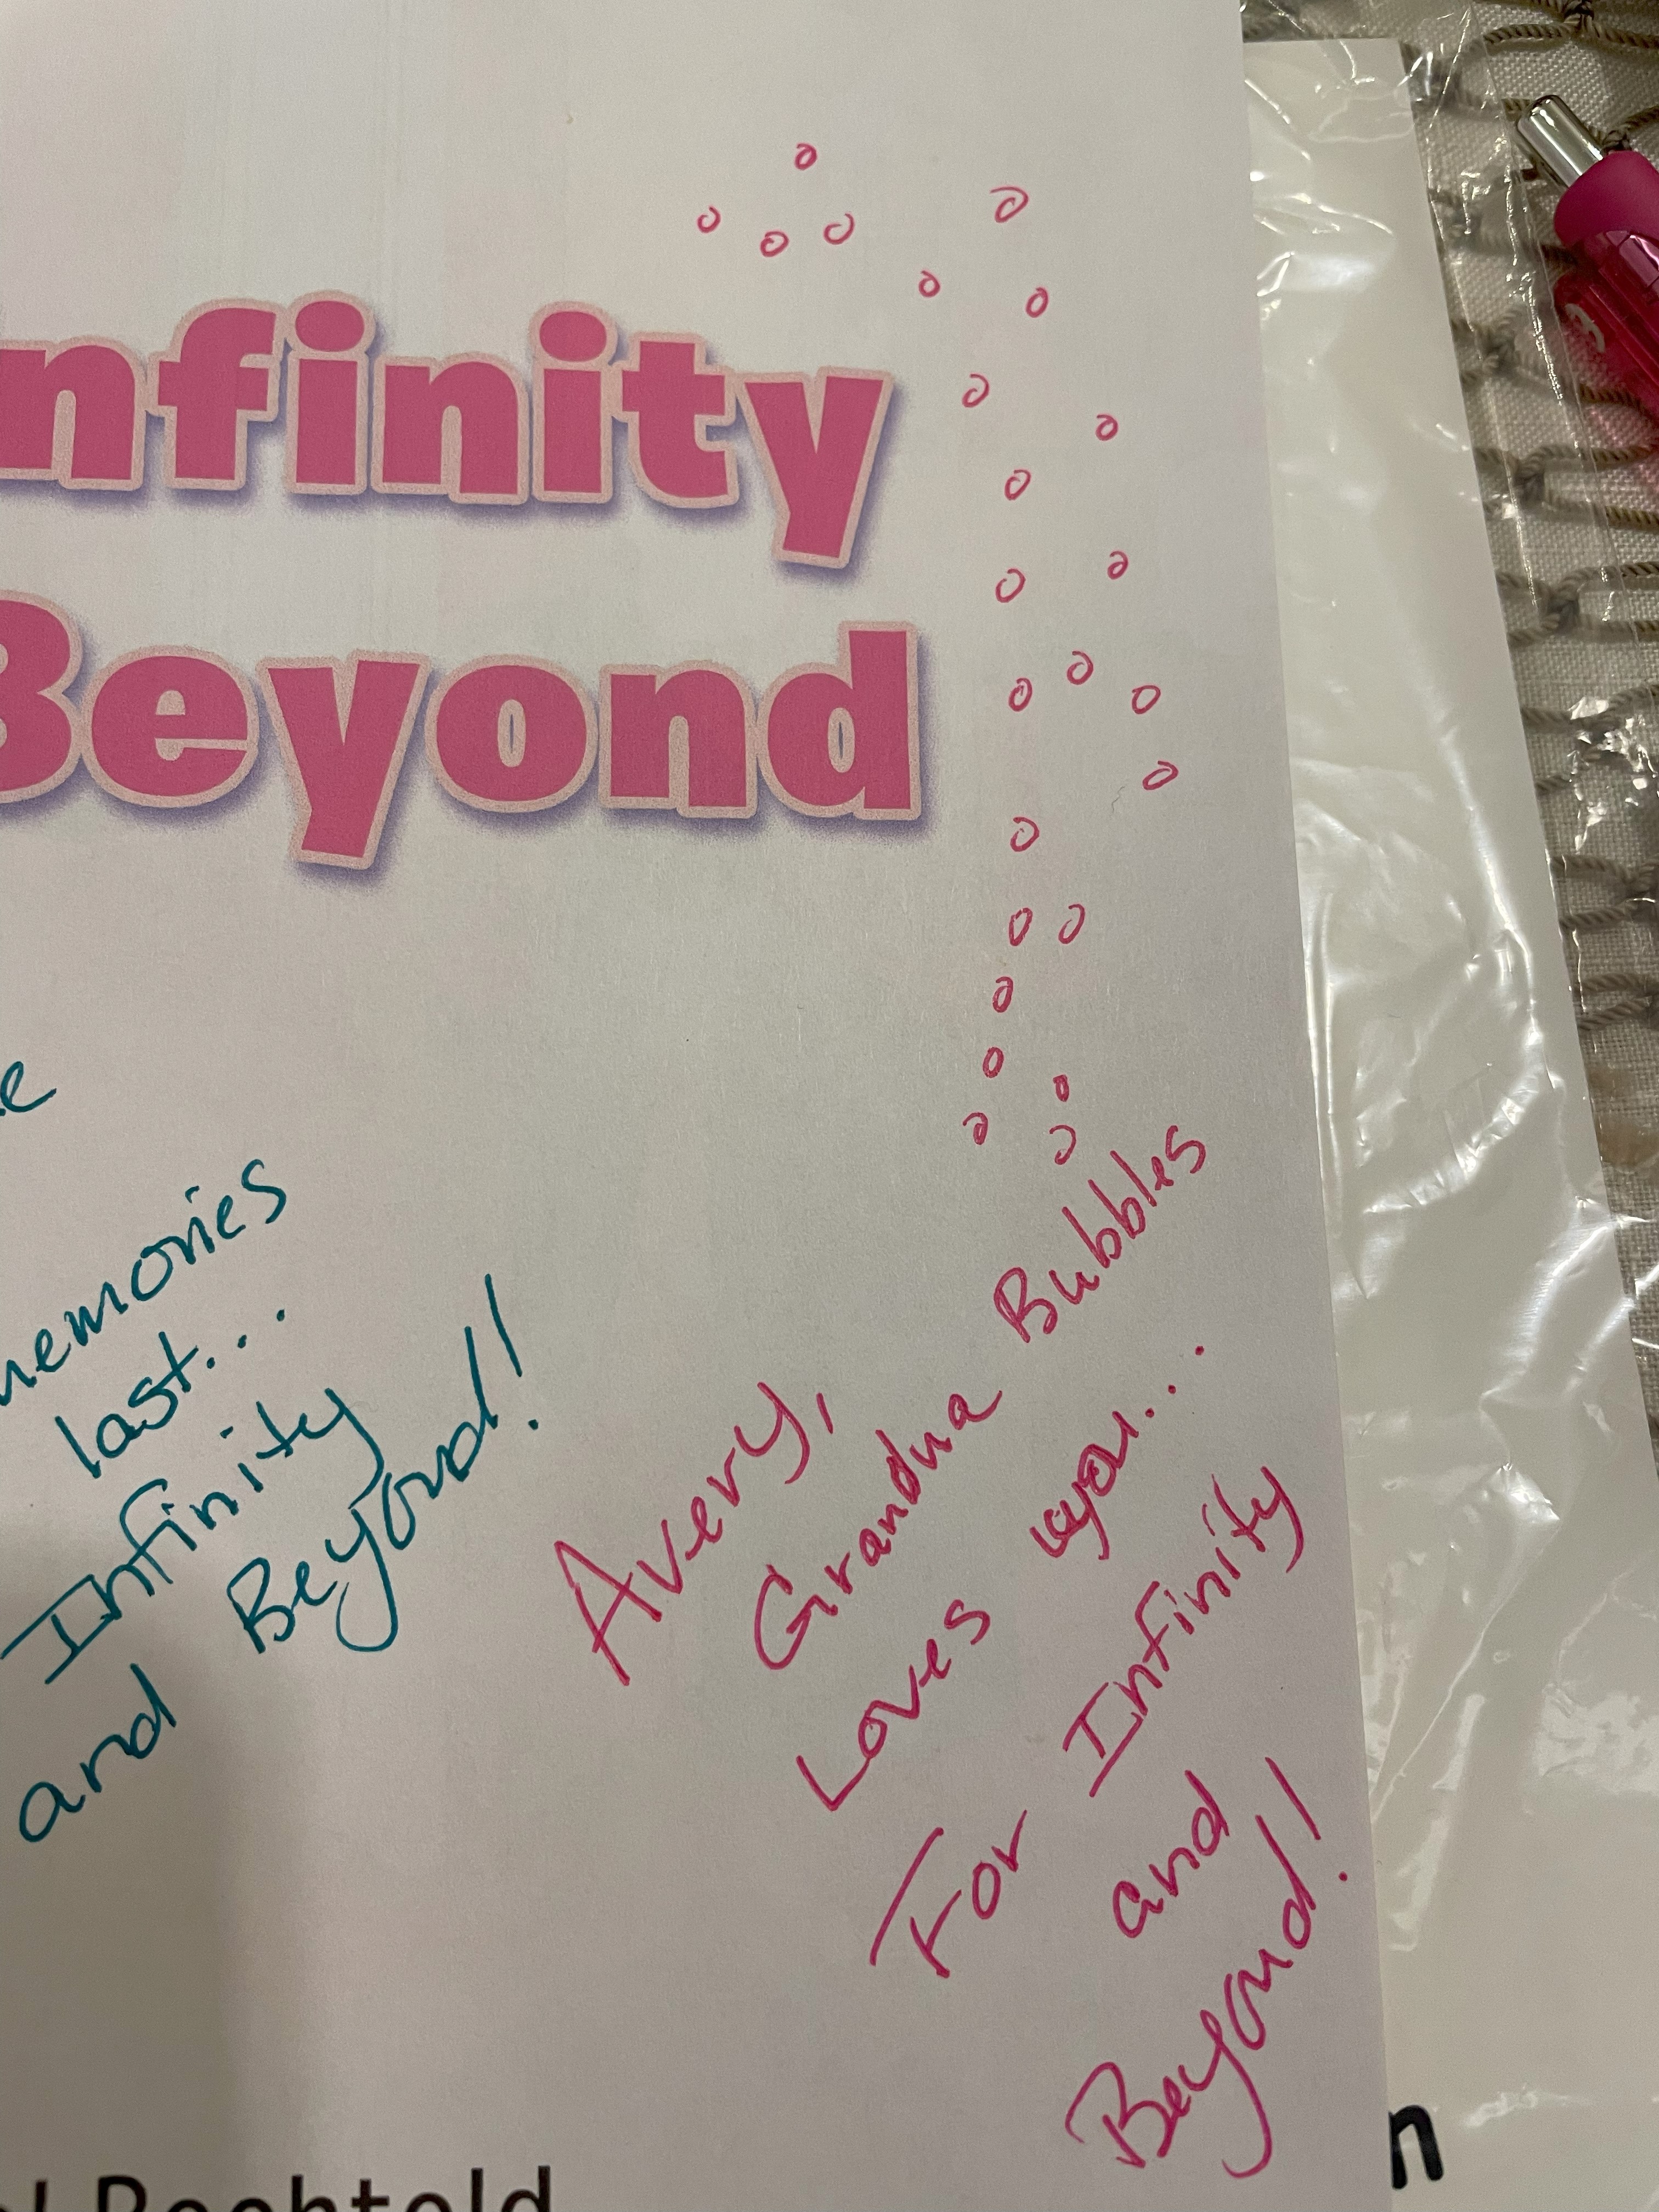 nfinity
Beyond
e
memories
last...
Infinity
and Beyond!
Avery,
Grandma Bubbles
Loves you...
For Infinity
and
Beyond!
Bechtold
n